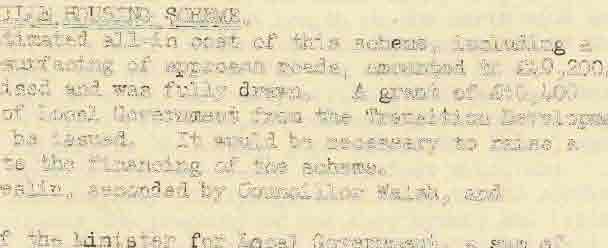 HOUSING SCHEME.
timated all-in cost of this scheme, including a
surfacing of approach roads, amounted to £49,200
ised and was fully drawn. A grant of £10,400
of Local Government from the Transition Developme
be issued. It would be necessary to raise a
te the financing of the scheme.
seconded by Councillor Walsh, and
f the Minister for Local Government, a sum of